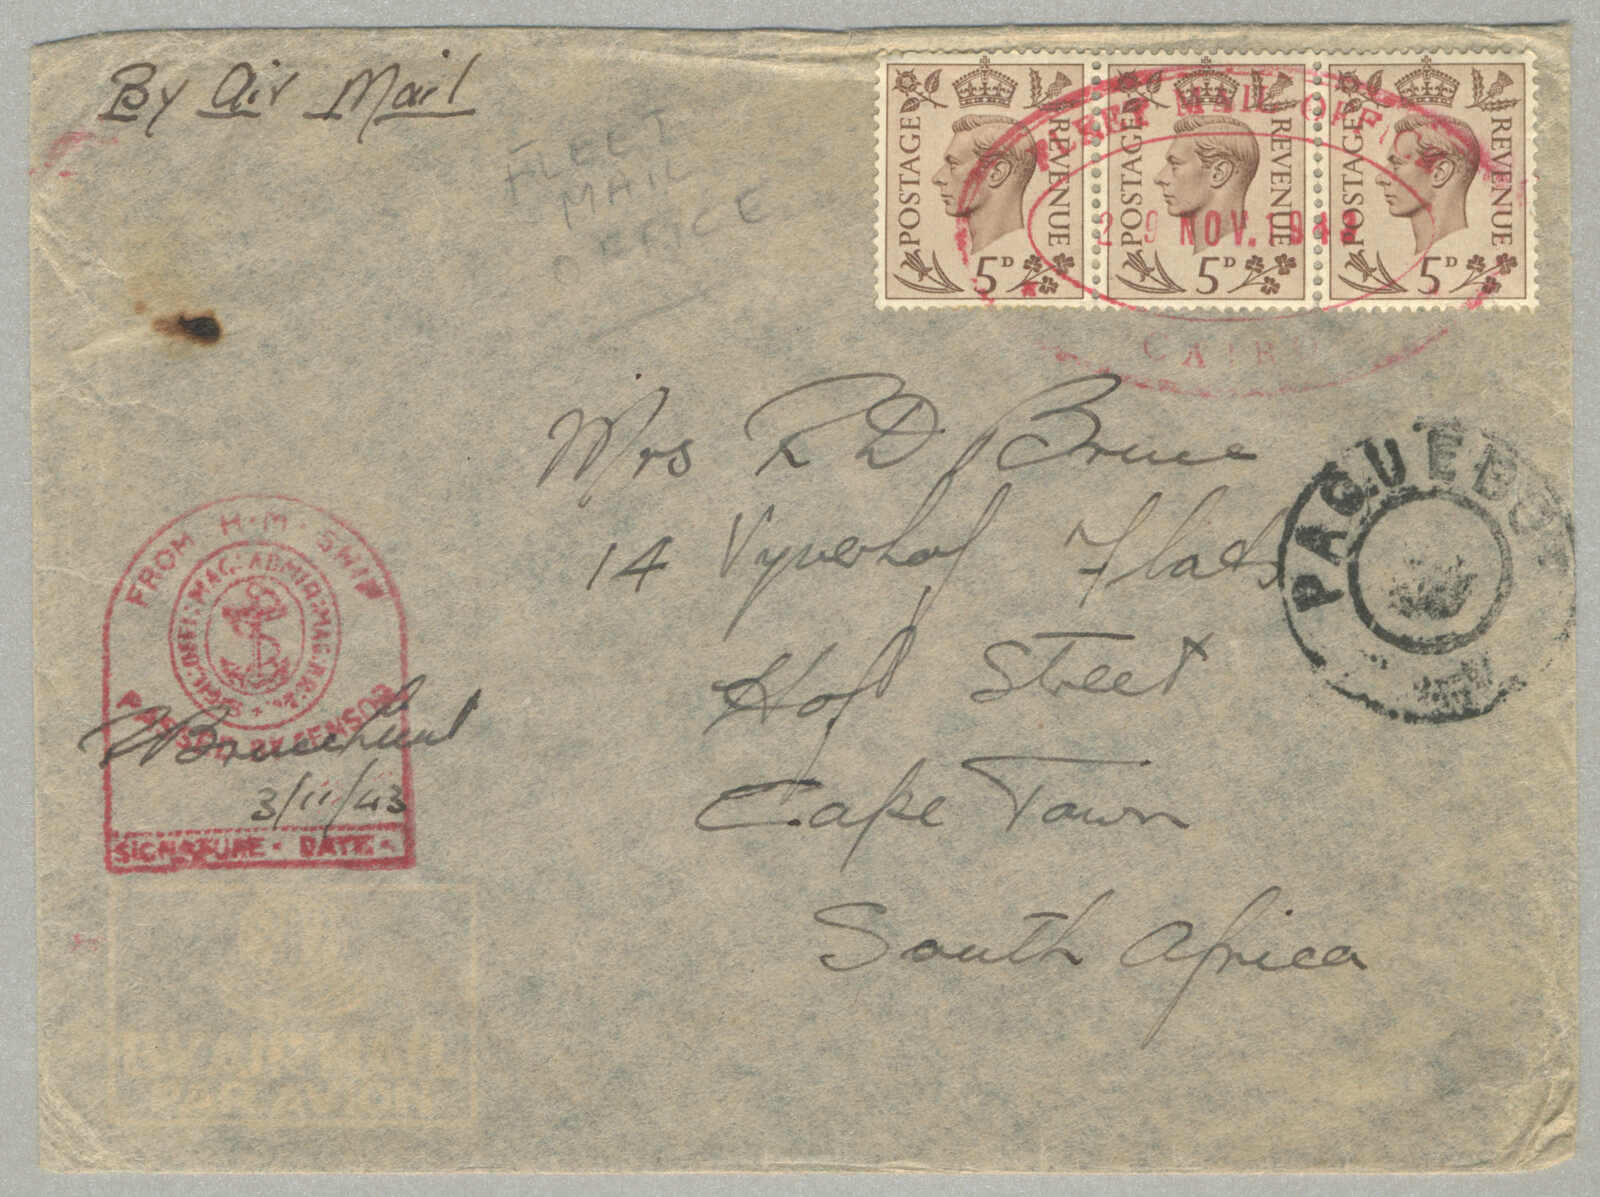 By Air Mail
FLEET
MAIL
OFFICE
POSTAGE REVENUE 5D
POSTAGE REVENUE 5D
POSTAGE REVENUE 5D
FLEET MAIL OFFICE
29 NOV. 1943
CAIRO
PAQUEBOT
Mrs R D Bruce
14 Vyverhof Flats
Hof Street
Cape Town
South Africa
FROM H.M. SHIP
PASSED BY CENSOR
3/11/43
SIGNATURE · DATE